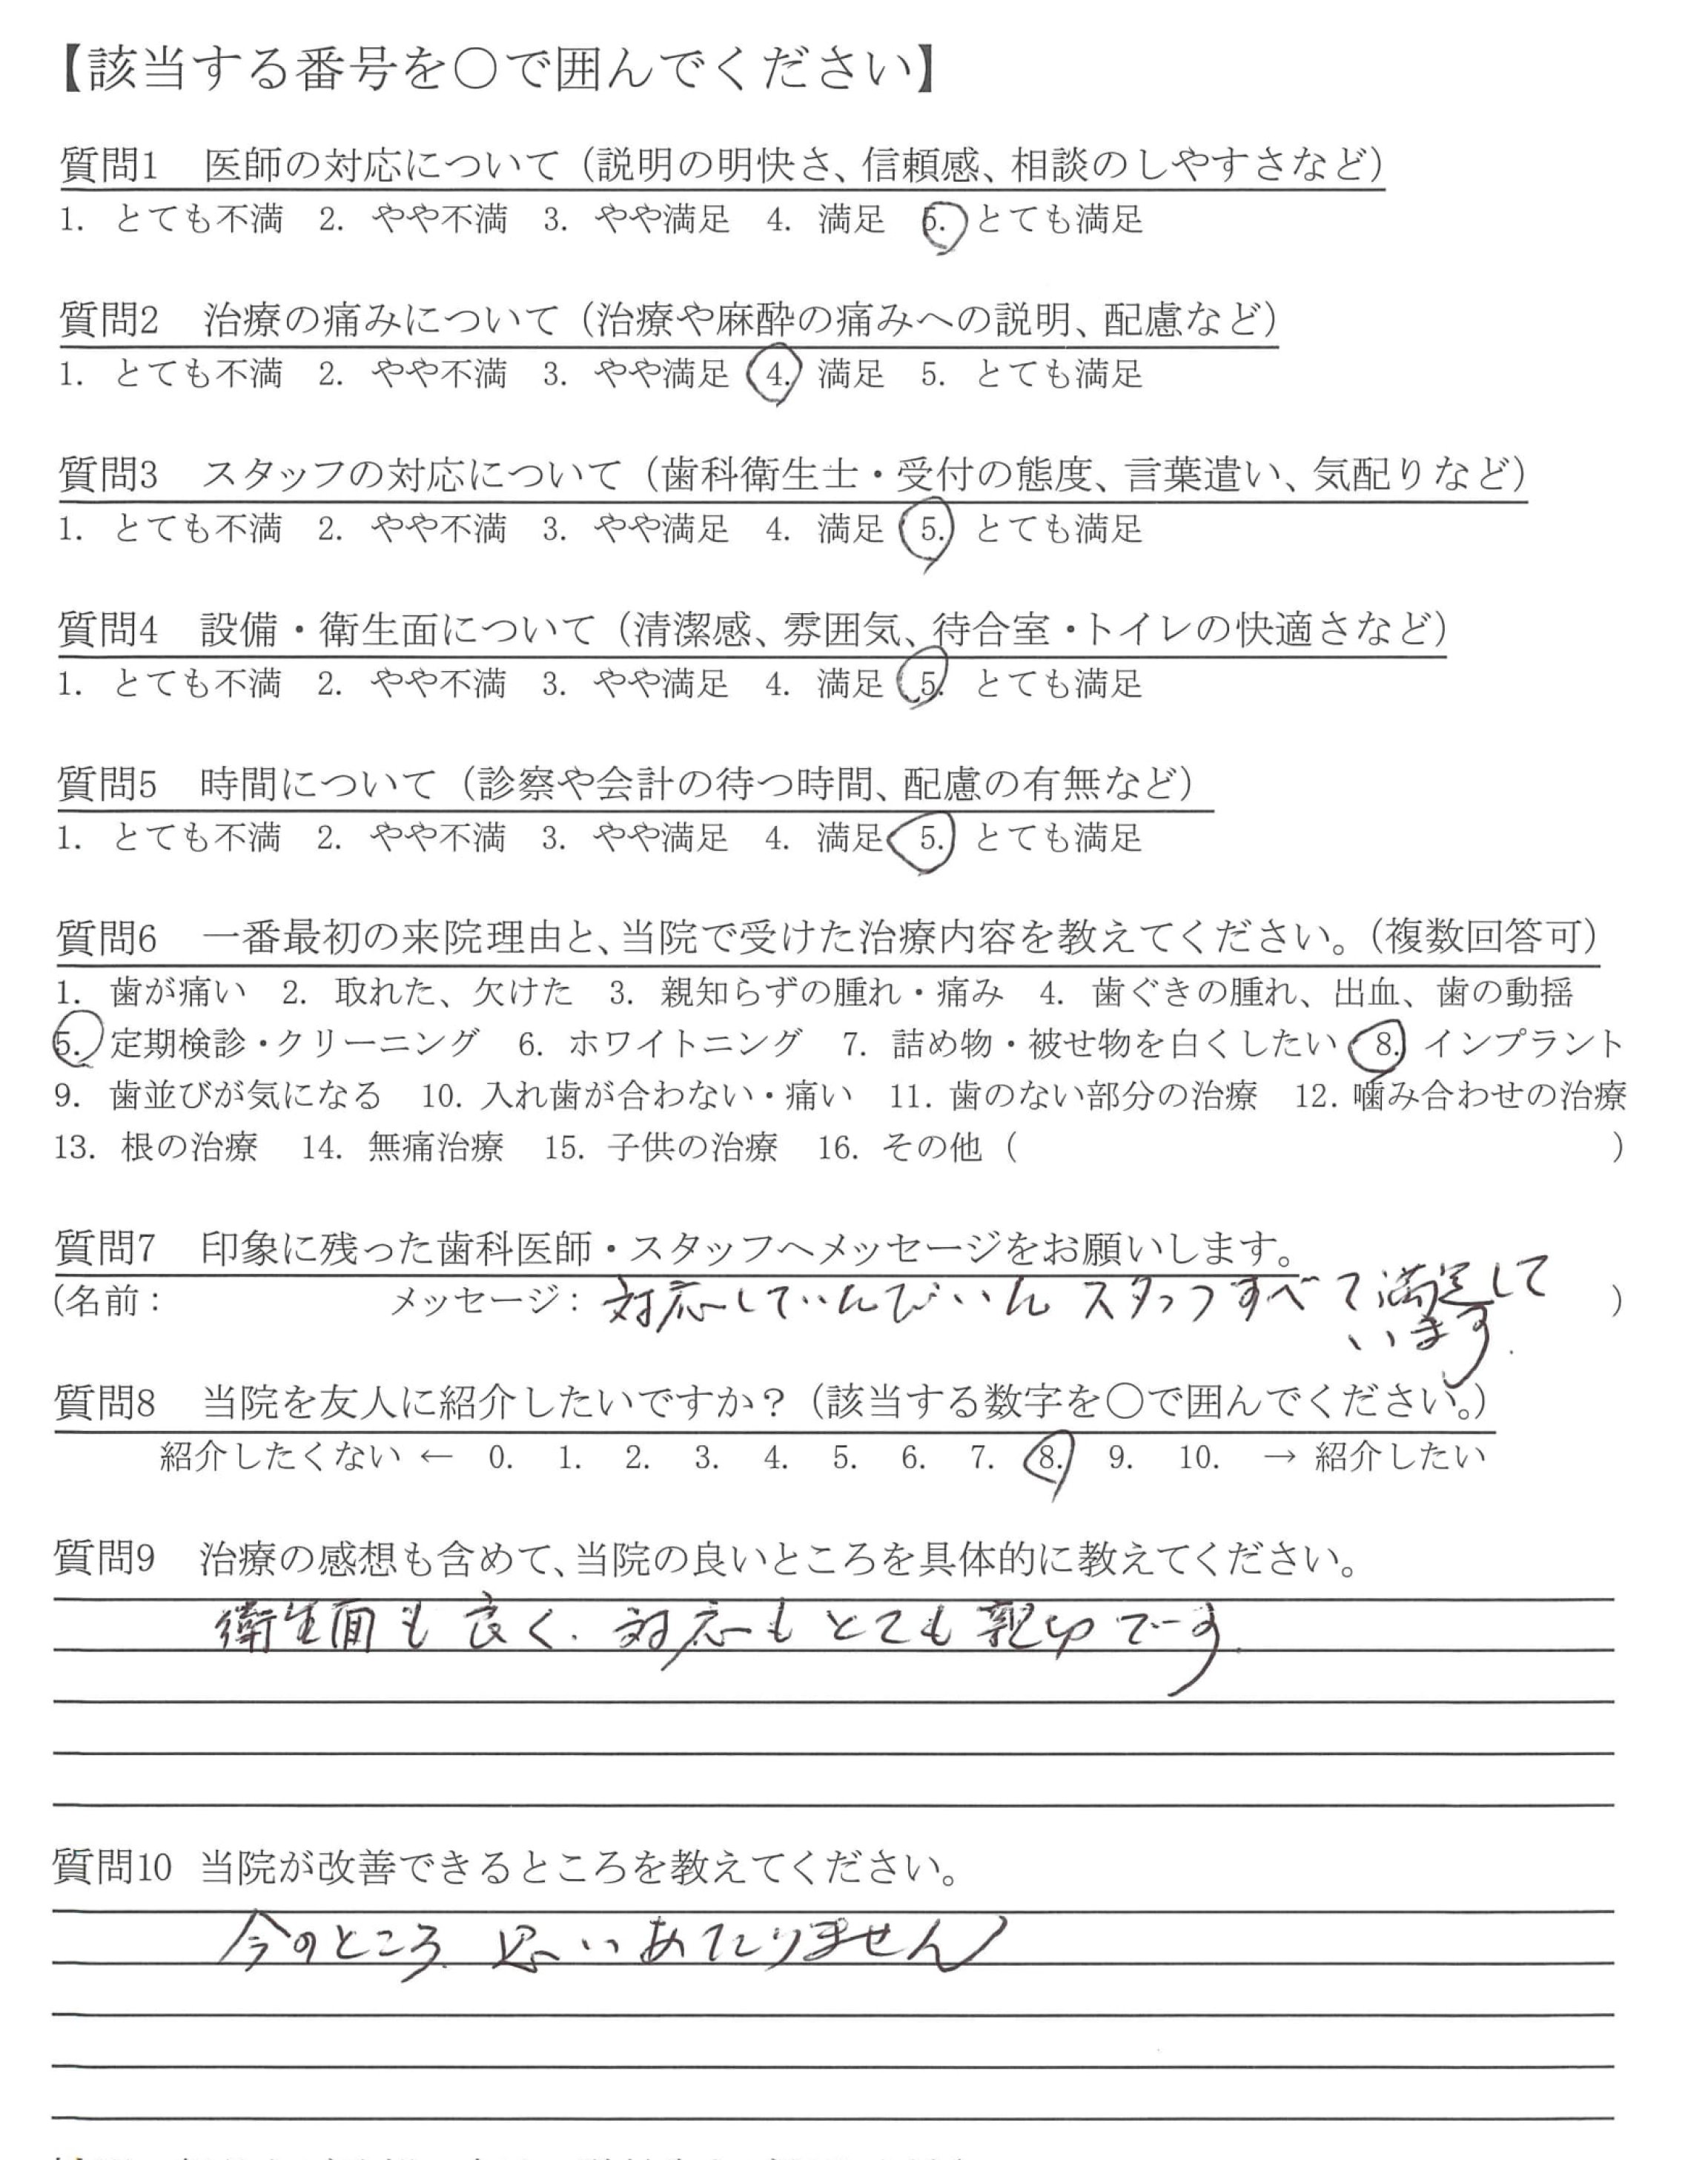 【該当する番号を○で囲んでください】
質問1　医師の対応について（説明の明快さ、信頼感、相談のしやすさなど）
1. とても不満 2. やや不満 3. やや満足 4. 満足 5. とても満足
質問2　治療の痛みについて（治療や麻酔の痛みへの説明、配慮など）
1. とても不満 2. やや不満 3. やや満足 4. 満足 5. とても満足
質問3　スタッフの対応について（歯科衛生士・受付の態度、言葉遣い、気配りなど）
1. とても不満 2. やや不満 3. やや満足 4. 満足 5. とても満足
質問4　設備・衛生面について（清潔感、雰囲気、待合室・トイレの快適さなど）
1. とても不満 2. やや不満 3. やや満足 4. 満足 5. とても満足
質問5　時間について（診察や会計の待つ時間、配慮の有無など）
1. とても不満 2. やや不満 3. やや満足 4. 満足 5. とても満足
質問6　一番最初の来院理由と、当院で受けた治療内容を教えてください。（複数回答可）
1. 歯が痛い 2. 取れた、欠けた 3. 親知らずの腫れ・痛み 4. 歯ぐきの腫れ、出血、歯の動揺
5. 定期検診・クリーニング 6. ホワイトニング 7. 詰め物・被せ物を白くしたい 8. インプラント
9. 歯並びが気になる 10. 入れ歯が合わない・痛い 11. 歯のない部分の治療 12. 噛み合わせの治療
13. 根の治療 14. 無痛治療 15. 子供の治療 16. その他（　）
質問7　印象に残った歯科医師・スタッフへメッセージをお願いします。
(名前：　メッセージ：対応していんびいん スタッフすべて満足して )
います.
質問8　当院を友人に紹介したいですか？（該当する数字を○で囲んでください。）
紹介したくない ← 0. 1. 2. 3. 4. 5. 6. 7. 8. 9. 10. → 紹介したい
質問9　治療の感想も含めて、当院の良いところを具体的に教えてください。
衛生面も良く. 対応もとても親切です.
質問10 当院が改善できるところを教えてください。
今のところ 思いあたりません